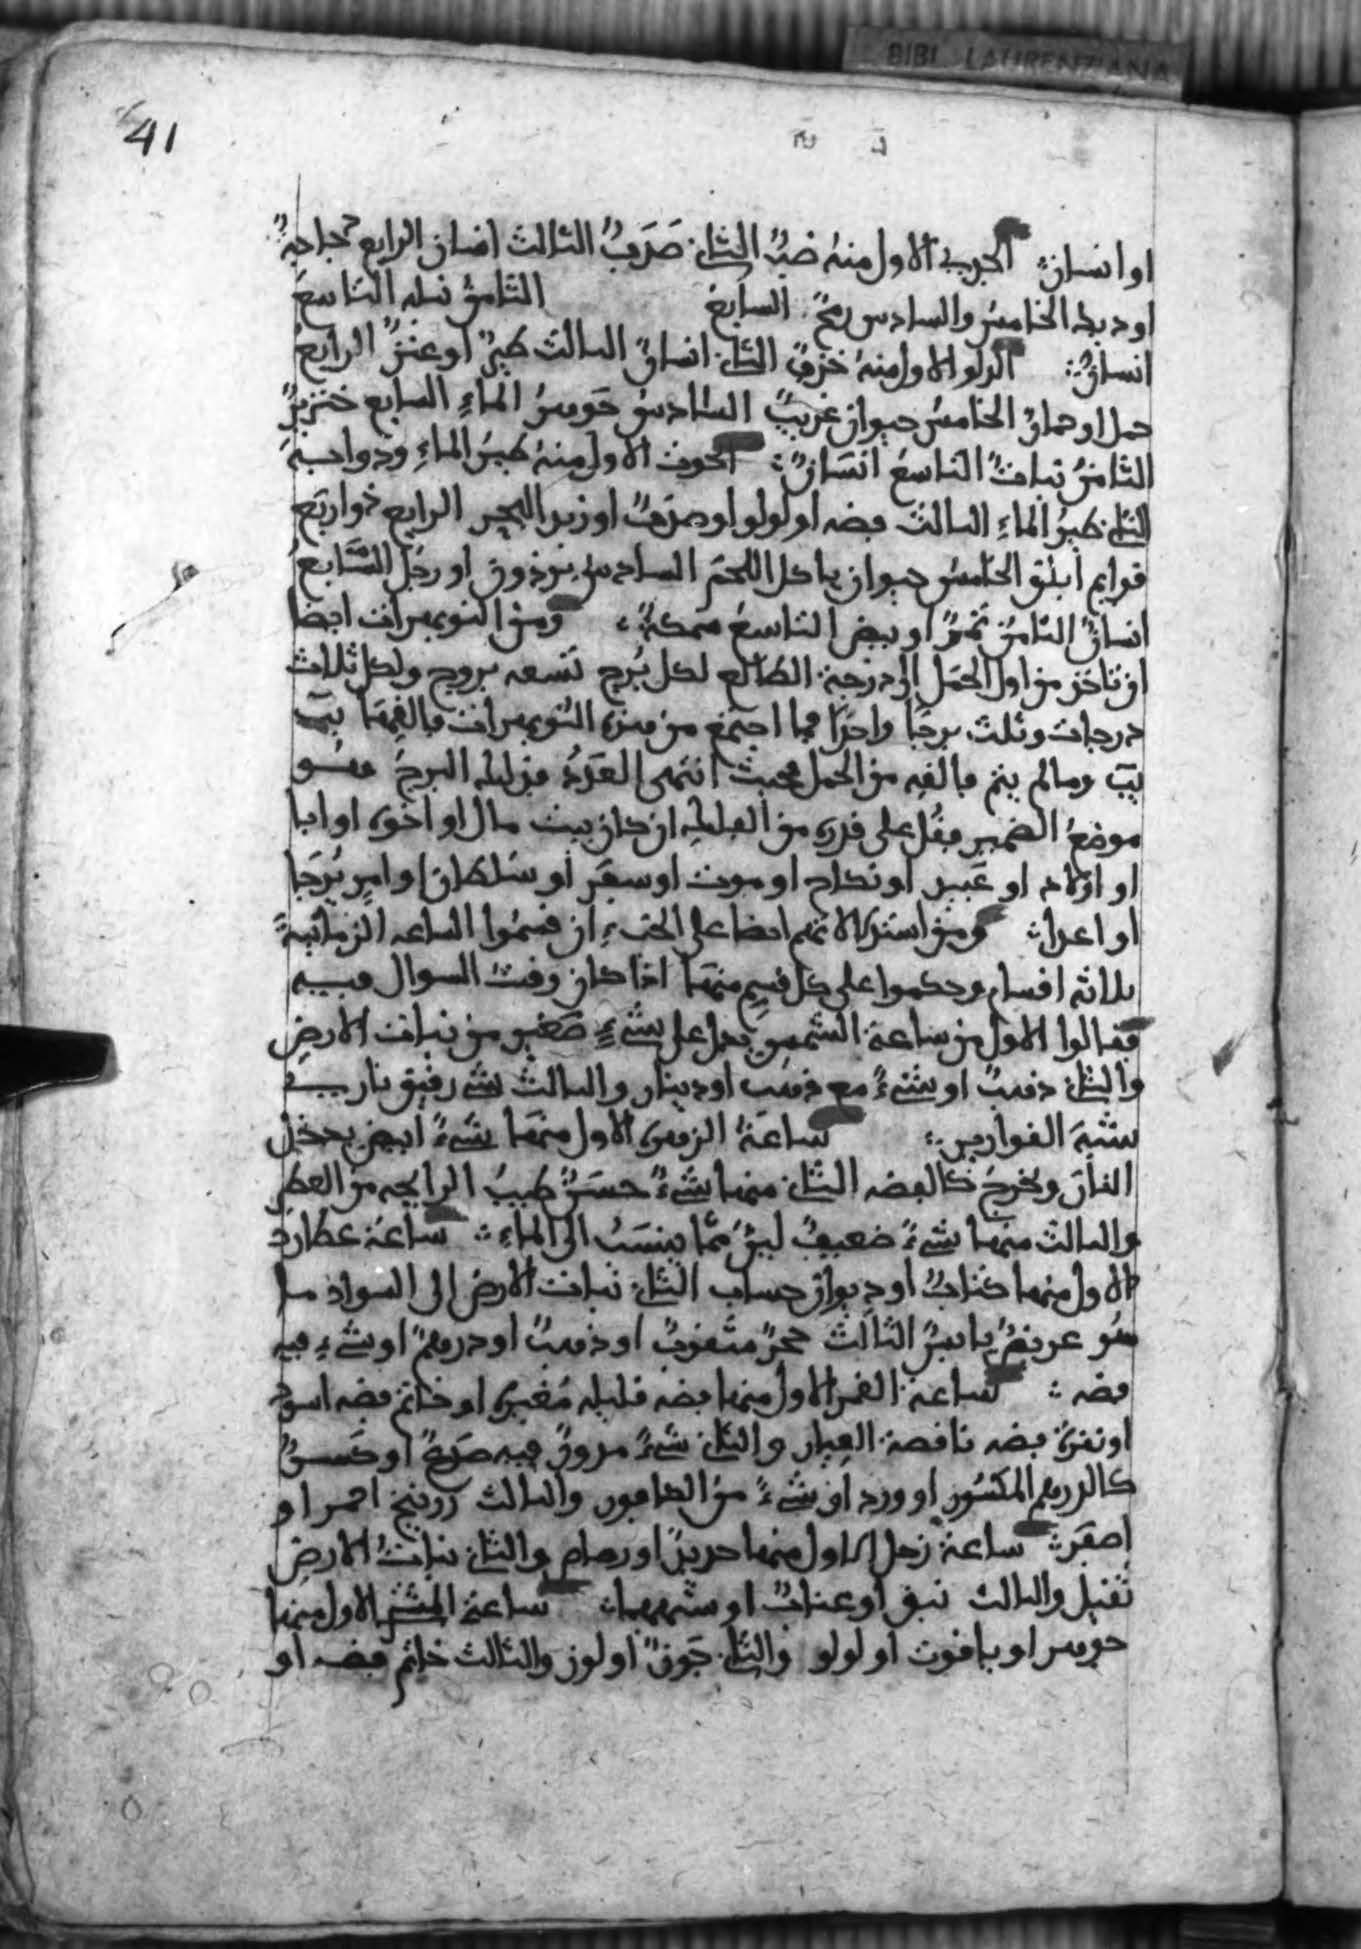 BIBL LAURENZIANA
41
او انسان الجدي الاول منه ضبّ الثاني صدفٌ الثالث انسان الرابع دجاجةٌ
او ديك الخامس والسادس السابع الثامن نبله التاسع
انسانٌ الدلو الاول منه خزفٌ الثاني انسانٌ الثالث طيرٌ او عنزٌ الرابع
حمل او حمارٌ الخامس حيوان غريبٌ السادس جوهرُ الماءِ السابع خنزيرٌ
الثامنُ نباتٌ التاسعُ انسانٌ الحوت الاول منه طيرُ الماءِ ودوابه
الثاني طيرُ الماءِ الثالث فضه او لولو او صدفٌ او زبد البحر الرابع ذو اربع
قوايم ابلق الخامسُ حيوان ياكل اللحمَ السادس برذون او رجل السّابع
انسانٌ الثامن تمرٌ او بيض التاسعُ سمكةٌ ومن النوبهرات ايضا
ان تاخذ من اول الحمَل الى درجة الطالع لكل بُرج تسعه بروج ولكل ثلاث
درجات وثلث برجًا واحدًا فما اجتمع من هذه النوبهرات فالقِها يبَ
يبَ وما لم يتم فالقه من الحمل فحيث انتهى العددُ من ليله البرجُ وهُو
موضعُ الضمير فقُل على قدره من الفلك ان كان بيت مال او اخوه او ابا
او اولاد او عَبيد او نكاح او موت او سفَر او سُلطان او امرٍ يُرجَا
او اعدا ومن استدلالاتهم ايضا على الخبء ان قسمُوا الساعه الزمانيةَ
ثلاثه اقسام وحكموا على كل قسمٍ منها اذا كان وقتُ السوال فيه
فقالوا الاول من ساعة الشمس يدل على شيءٍ صغير من نبات الارض
والثاني ذهبٌ او شيءٌ مع ذهب او دينار والثالثُ شي رقيق ناري
شبهَ القوارير ساعةُ الزهره الاول منها شيءٌ ابيض يدخلُ
النارَ ويخرجُ كالفضه الثاني منها شيءٌ حسَنٌ طيبُ الرايحه من العطرِ
والثالث منها شيءٌ ضعيفٌ لينٌ ممّا ينسَبُ الى الماءِ ساعة عطارد
الاول منها كتابٌ او ديوان حساب الثاني نبات الارض الى السواد ما
هُو عروقهُ يابسٌ الثالثُ حجرٌ مثقوبٌ او ذهبٌ او درهمٌ او شيءٍ فيه
فضه ساعة القمر الاول منها فضه قليله مُغبره او خاتم فضه اسود
او نقرهُ فضه ناقصة العيار والثاني شيءٌ مدورٌ فيه صَدعٌ او كسرٌ
كالدرهم المكسُور او ورد او شيءٌ من الكافور والثالث زرنيخ احمر او
اصفر ساعة زحل الاول منها حديدٌ او رصاص والثاني نباتُ الارض
ثقيل والثالث نبق او عنابٌ او شبههما ساعة المشتري الاول منها
جوهر او ياقوت او لولو والثاني جَوزٌ او لوز والثالث خاتم فضه او